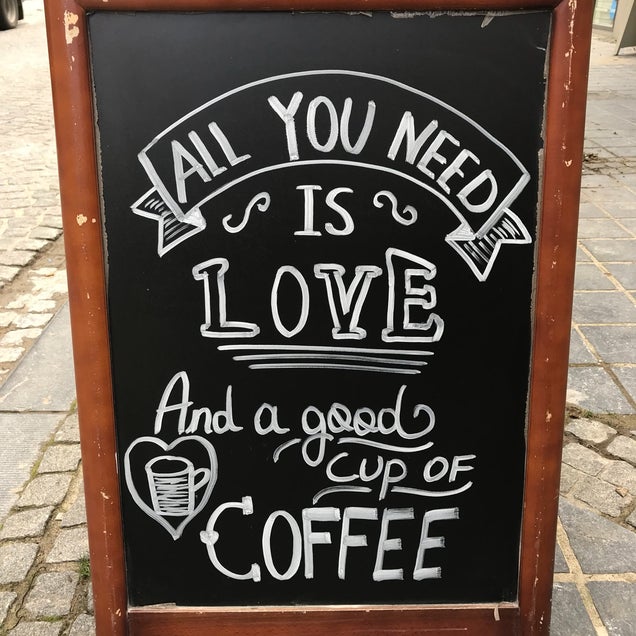 ALL YOU NEED
IS
LOVE
And a good
CUP OF
COFFEE